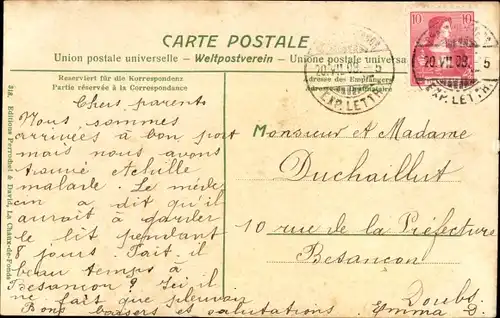 CARTE POSTALE
Union postale universelle – Weltpostverein – Unione postale universa
Reserviert für die Korrespondenz
Partie réservée à la Correspondance
Adresse des Empfängers
10 10
20.VII.09. 5
EXP.LETTR.
20.VII.09. 5
EXP.LETTR.
Editions Perrochet & David, La Chaux-de-Fonds
Chers parents
Nous sommes
arrivées à bon port
mais nous avons
trouvé Achille
malade. Le méde
cin a dit qu'il
aurait à garder
le lit pendant
8 jours. Fait il
beau temps à
Besançon? Ici il
ne fait que pleuvoir
Bons baisers et salutations. Emma D.
Monsieur et Madame
Duchaillut
10 rue de la Préfecture
Besançon
Doubs.